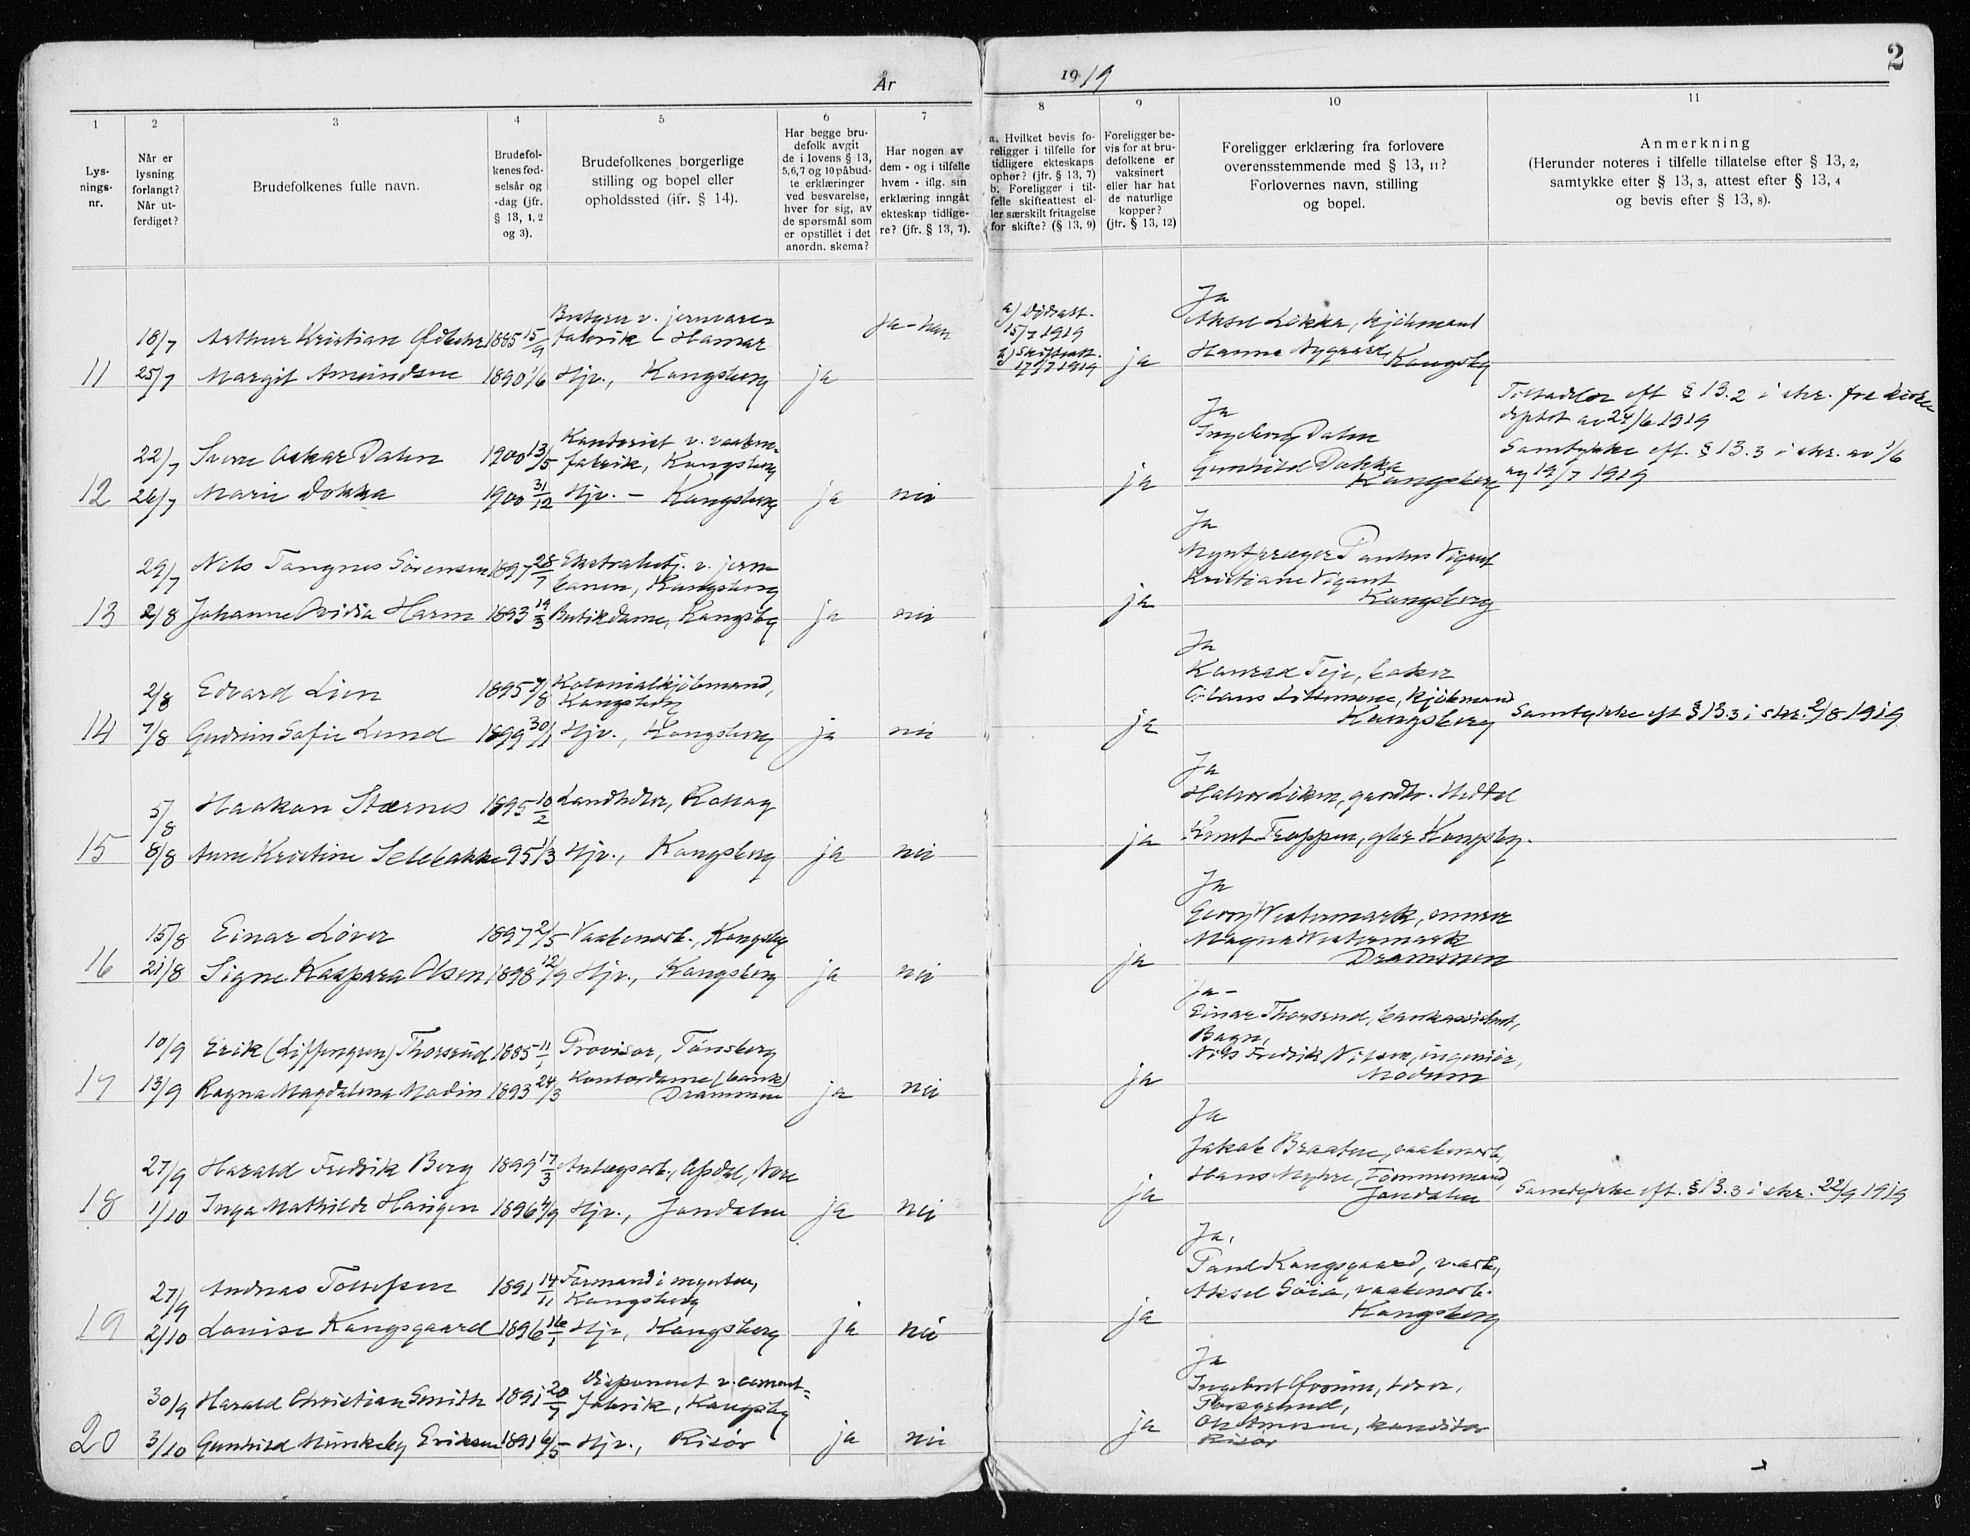 År 1919
2
1 2 3 4 5 6 7 8 9 10 11
Lys-
nings-
nr.
Når er
lysning
forlangt?
Når ut-
ferdiget?
Brudefolkenes fulle navn.
Brudefol-
kenes fød-
selsår og
-dag (jfr.
§ 13, 1, 2
og 3).
Brudefolkenes borgerlige
stilling og bopel eller
opholdssted (jfr. § 14).
Har begge bru-
defolk avgit
de i lovens § 13,
5,6,7 og 10 påbud-
te erklæringer
ved besvarelse,
hver for sig, av
de spørsmål som
er opstillet i det
anordn. skema?
Har nogen av
dem - og i tilfelle
hvem - iflg. sin
erklæring inngått
ekteskap tidlige-
re? (jfr. § 13, 7).
a. Hvilket bevis fo-
religger i tilfelle for
tidligere ekteskaps
ophør? (jfr. § 13, 7)
b. Foreligger i til-
felle skifteattest el-
ler særskilt fritagelse
for skifte? (§ 13, 9)
Foreligger be-
vis for at bru-
defolkene er
vaksinert
eller har hat
de naturlige
kopper?
(jfr. § 13, 12)
Foreligger erklæring fra forlovere
overensstemmende med § 13, 11?
Forlovernes navn, stilling
og bopel.
Anmerkning
(Herunder noteres i tilfelle tillatelse efter § 13, 2,
samtykke efter § 13, 3, attest efter § 13, 4
og bevis efter § 13, 8).
18/7 Arthur Kristian 1885 15/9 Bestyrer v. jernvare-
fabrik Hamar ja - han
a) Dødsatt.
15/7 1919
b) Skifteatt.
17/7 1919
Ja
Aksel Løkka, kjøbmand
Hanna Nygaard, Kongsbg
11 25/7 Margit Amundsen 1890 1/6 Hjv., Kongsberg ja ja
22/7 Sverre Oskar Dalen 1900 13/5 Kontorist v. vaaben-
fabrik, Kongsberg
Ja
Ingeborg Dalen
Gunhild Dokka
Kongsberg
Tilladelse eft § 13.2 i skr. fra kirke
deptet av 24/6 1919
Samtykke eft. § 13.3 i skr. av 1/6
og 19/7 1919
12 26/7 Marie Dokka 1900 31/12 Hjv. - Kongsberg ja nei ja
29/7 Nils Tangnes Sörensen 1897 28/7 Ekstrabetj. v. jern-
banen, Kongsberg
Ja
Myntpræger Paulus Vigant
Kristiane Vigant
Kongsberg
13 2/8 Johanne Ovidia Harm 1893 19/3 Butikdame, Kongsbg ja nei ja
2/8 Edvard Lien 1895 7/8 Kolonialkjöbmand,
Kongsberg
Ja
Konrad Teje, baker
kjöbmand
Kongsberg
14 7/8 Gudrun Sofie Lund 1899 30/1 Hjv., Kongsberg ja nei ja
Samtykke eft § 13.3 i skr. 2/8 1919
5/8 Haakon Stærnes 1895 10/2 Landhdlr, Rollag
Ja
Halvor Löken, gaardbr. Heddal
Knut Troppen, gbr Kongsbg.
15 8/8 Anne Kristine Selebakke 95 1/3 Hjv., Kongsberg ja nei ja
15/8 Einar Löver 1897 2/5 Vaabenarb., Kongsbg
Ja
Georg Westermark, murer
Magna Westermark
Drammen
16 21/8 Signe Kaspara Olsen 1898 12/9 Hjv., Kongsberg ja nei ja
10/9 Erik (Liffengren) Thorsrud 1885 11/1 Provisor, Tönsberg
Ja -
Einar Thorsrud, bankassistent,
Bagn,
Nils Fredrik Nilsen, ingeniör,
Modum
17 13/9 Ragna Magdalena Modin 1893 24/3 Kontordame (bank)
Drammen ja nei ja
27/9 Harald Fredrik Berg 1899 17/3 Anlægsarb., Opdal, Nore
Ja
Jakob Braaten, vaabenarb,
Hans Myhre, Tömmermand,
Jondalen
18 1/10 Inga Mathilde Haugen 1896 4/9 Hjv., Jondalen ja nei ja
Samtykke eft. § 13.3 i skr. 22/9 1919
27/9 Andreas Tollefsen 1891 14/11 Formand i mynten,
Kongsberg
Ja,
Paul Kongsgaard, v.arb,
Aksel Göia, vaabenarb.
Kongsberg
19 2/10 Lovise Kongsgaard 1896 16/1 Hjv, Kongsberg ja nei ja
30/9 Harald Christian Smith 1891 20/7 Disponent v. cement-
fabrik, Kongsbg
Ja
Porsgrund,
konditor
Risör
20 3/10 Gunhild Munkeby Eriksen 1891 6/5 - Hjv., Risör ja nei ja